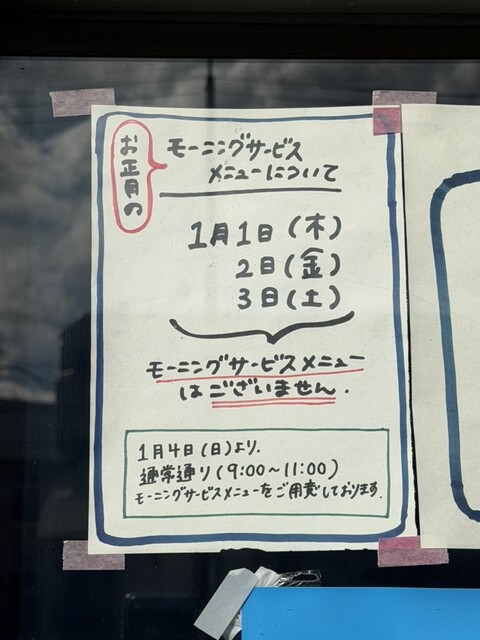 お正月の
モーニングサービス
メニューについて
1月1日(木)
2日(金)
3日(土)
モーニングサービスメニュー
はございません.
1月4日(日)より.
通常通り(9:00~11:00)
モーニングサービスメニューをご用意しております.